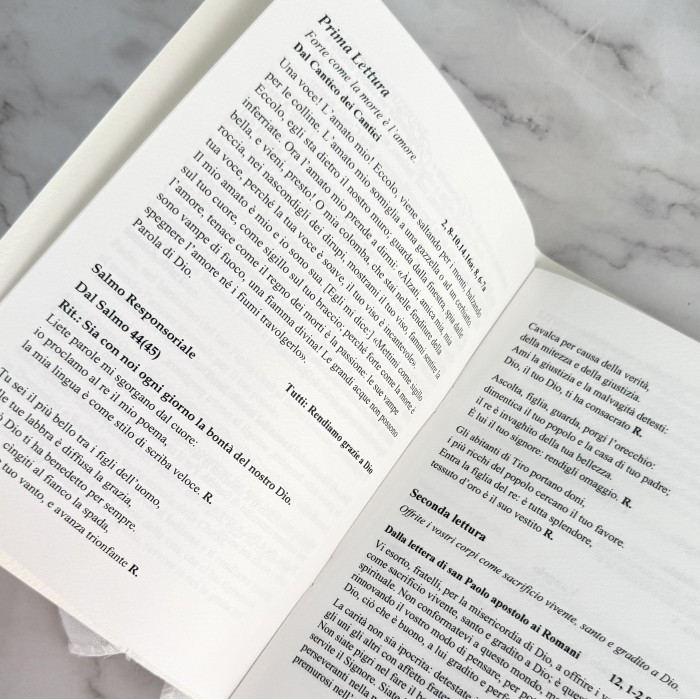 Prima Lettura
Forte come la morte è l'amore.
Dal Cantico dei Cantici
2, 8-10.14.16a; 8, 6-7a
Una voce! L'amato mio! Eccolo, viene saltando per i monti, balzando
per le colline. L'amato mio somiglia a una gazzella o ad un cerbiatto.
Eccolo, egli sta dietro il nostro muro; guarda dalla finestra, spia dalle
inferriate. Ora l'amato mio prende a dirmi: «Alzati, amica mia, mia
bella, e vieni, presto! O mia colomba, che stai nelle fenditure della
roccia, nei nascondigli dei dirupi, mostrami il tuo viso, fammi sentire la
tua voce, perché la tua voce è soave, il tuo viso è incantevole».
Il mio amato è mio e io sono sua. [Egli mi dice:] «Mettimi come sigillo
sul tuo cuore, come sigillo sul tuo braccio; perché forte come la morte è
l'amore, tenace come il regno dei morti è la passione: le sue vampe
sono vampe di fuoco, una fiamma divina! Le grandi acque non possono
spegnere l'amore né i fiumi travolgerlo».
Parola di Dio.
Tutti: Rendiamo grazie a Dio
Salmo Responsoriale
Dal Salmo 44(45)
Rit.: Sia con noi ogni giorno la bontà del nostro Dio.
Liete parole mi sgorgano dal cuore:
io proclamo al re il mio poema,
la mia lingua è come stilo di scriba veloce. R.
Tu sei il più bello tra i figli dell'uomo,
tue labbra è diffusa la grazia,
Dio ti ha benedetto per sempre.
cingiti al fianco la spada,
tuo vanto, e avanza trionfante R.
Cavalca per causa della verità,
della mitezza e della giustizia.
Ami la giustizia e la malvagità detesti:
Dio, il tuo Dio, ti ha consacrato R.
Ascolta, figlia, guarda, porgi l'orecchio:
dimentica il tuo popolo e la casa di tuo padre;
il re è invaghito della tua bellezza.
È lui il tuo signore: rendigli omaggio. R.
Gli abitanti di Tiro portano doni,
i più ricchi del popolo cercano il tuo favore.
Entra la figlia del re: è tutta splendore,
tessuto d'oro è il suo vestito R.
Seconda lettura
Offrite i vostri corpi come sacrificio vivente, santo e gradito a Dio.
Dalla lettera di san Paolo apostolo ai Romani
12, 1-2.
Vi esorto, fratelli, per la misericordia di Dio, a offrire i
come sacrificio vivente, santo e gradito a Dio; è
spirituale. Non conformatevi a questo mondo,
rinnovando il vostro modo di pensare, per
Dio, ciò che è buono, a lui gradito e perf
La carità non sia ipocrita: detestate
gli uni gli altri con affetto frate
Non siate pigri nel fare il
servite il Signore. Siate
perseveranti nella
premurosi nell'